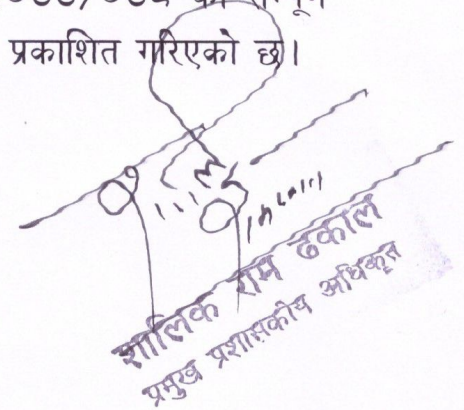 प्रकाशित गरिएको छ।
शालिक राम ढकाल
प्रमुख प्रशासकीय अधिकृत